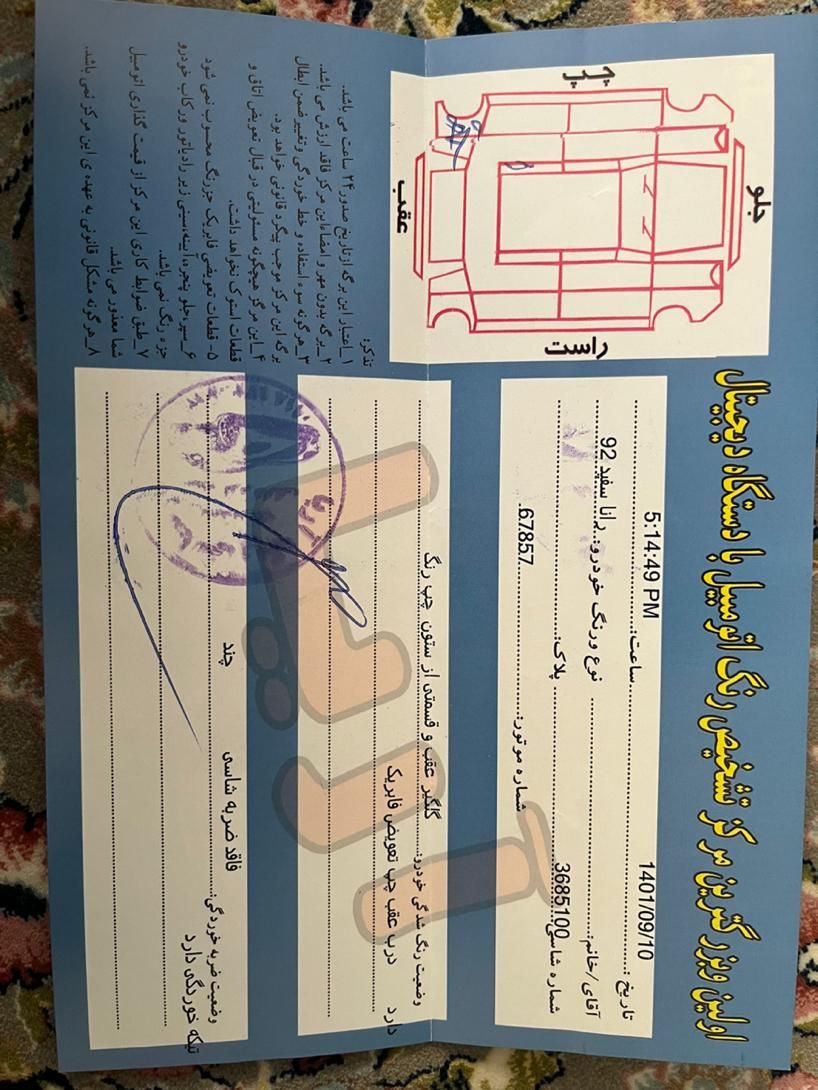 اولین و بزرگترین مرکز تشخیص رنگ اتومبیل با دستگاه دیجیتال
تاریخ : 1401/09/10 ساعت: 5:14:49 PM
آقای/خانم: نوع ورنگ خودرو: رانا سفید 92
شماره شاسی 3685100 پلاک:
شماره موتور: 67857
وضعیت رنگ شدگی خودرو: گلگیر عقب و قسمتی از ستون چپ رنگ
دارد درب عقب چپ تعویض فابریک
وضعیت ضربه خوردگی: فاقد ضربه شاسی چند
تیکه خوردگی دارد
چپ
جلو
عقب
راست
تذکر:
۱_اعتبار این برگه ازتاریخ صدور ۲۴ ساعت می باشد.
۲_برگه بدون مهر و امضاءاین مرکز فاقد ارزش می باشد.
۳_هرگونه سوء استفاده و خط خوردگی وتغییر ضمن ابطال
برگه این مرکز موجب پیگرد قانونی خواهد بود.
۴_این مرکز هیچگونه مسئولیتی در قبال تعویض اتاق و
قطعات استوک نخواهد داشت.
۵_قطعات تعویضی فابریک جزرنگ محسوب نمی شود
۶_سپرجلو پنجره،آیینه،سینی زیر رادیاتور ورکاب خودرو
جزء رنگ نمی باشد.
۷_طبق ضوابط کاری این مرکز از قیمت گذاری اتومبیل
شما معذور می باشد.
۸_هرگونه مشکل قانونی به عهده ی این مرکز نمی باشد.